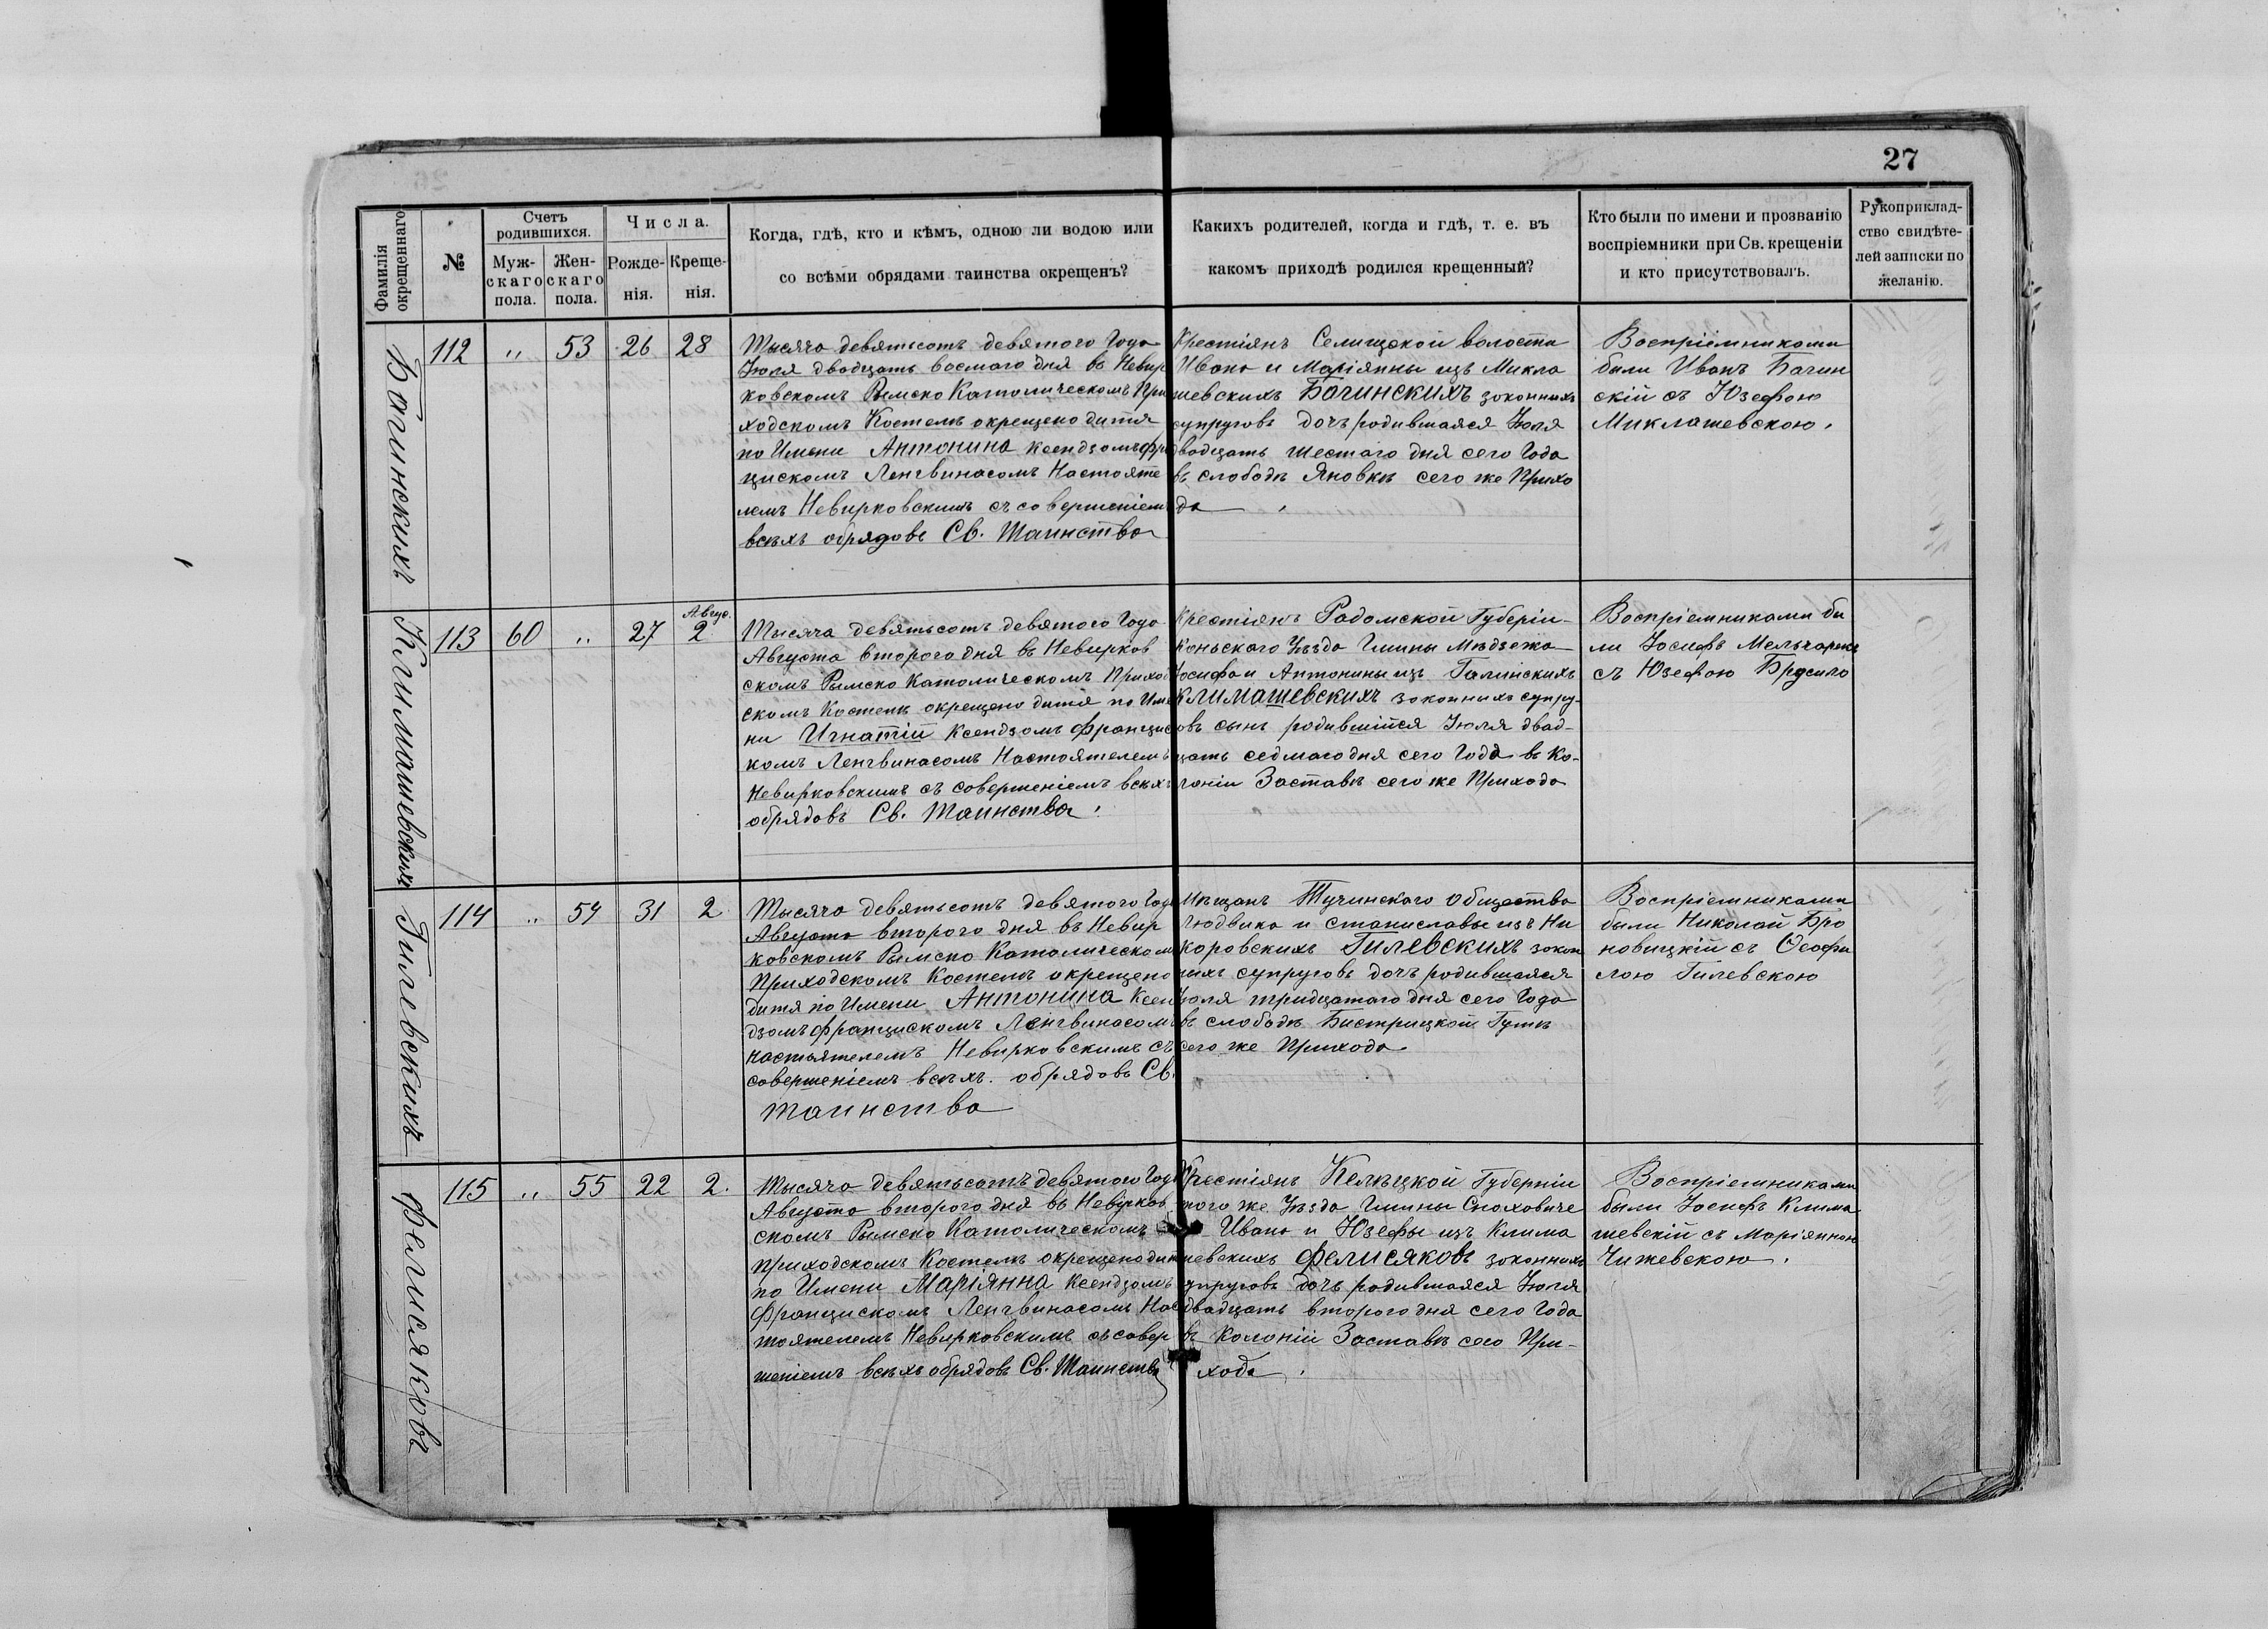 27
Фамилія окрещеннаго
№
Счетъ родившихся.
Мужскаго пола.
Женскаго пола.
Числа.
Рожденія.
Крещенія.
Когда, гдѣ, кто и кѣмъ, одною ли водою или
со всѣми обрядами таинства окрещенъ?
Какихъ родителей, когда и гдѣ, т. е. въ
какомъ приходѣ родился крещенный?
Кто были по имени и прозванію
воспріемники при Св. крещеніи
и кто присутствовалъ.
Рукоприклад-
ство свидѣте-
лей записки по
желанію.
Багинскихъ
112 „ 53 26 28
Тысяча девятьсотъ девятого Года
Іюля двадцать восмаго дня въ Невир
ковскомъ Рымско Католическомъ При
ходскомъ Костелѣ окрещено дитя
по Имени Антонина Ксендзомъ Фр
цискомъ Ленгвинасомъ Настояте
лемъ Невирковскимъ съ совершеніем
всѣхъ обрядовъ Св. Таинства
Крестіянъ Селищской волости
Ивана и Маріянны изъ Микла
шевскихъ Багинскихъ законныхъ
супруговъ дочъ родившаяся Іюля
двадцать шестаго дня сего Года
въ слободѣ Яновкѣ сего же Прихо
да
Воспріемниками
были Иванъ Багин
скій съ Юзефою
Миклашевскою.
Климашевскихъ
113 60 „ 27 Авгус. 2
Тысяча девятьсотъ девятого Года
Августа второго дня въ Невирков
скомъ Рымско Католическомъ Приход
скомъ Костелѣ окрещено дитя по Име
ни Игнатій Ксендзомъ Францис
комъ Ленгвинасомъ Настоятелемъ
Невирковскимъ съ совершеніемъ всѣхъ
обрядовъ Св. Таинства.
Крестіянъ Радомской Губеріи
Коньскаго Уѣзда Гмины Мѣдзежа
Іосифа и Антонины изъ Галинскихъ
Климашевскихъ законныхъ супру-
овъ сынъ родившійся Іюля двад-
цать седмаго дня сего Года въ Ко-
лоніи Заставѣ сего же Прихода
Воспріемниками бы
ли Іосифъ Мельчарекъ
съ Юзефою Брусило
Гилевскихъ
114 „ 54 31 2
Тысяча девятьсотъ девятого Года
Августа второго дня въ Невир
ковскомъ Рымско Католическом
Приходскомъ Костелѣ окрещено
дитя по Имени Антонина Ксен
дзомъ Францискомъ Ленгвинасомъ
Настоятелемъ Невирковскимъ съ
совершеніемъ всѣхъ обрядовъ Св.
Таинства
Мѣщанъ Тучинскаго Общества
Людвика и Станиславы изъ Ни
коровскихъ Гилевскихъ закон
ныхъ супруговъ дочъ родившаяся
Іюля тридцатаго дня сего Года
въ слободѣ Бистрицкой Гутѣ
сего же Прихода
Воспріемниками
были Николай Бро
новицкій съ Ѳеофи
лою Гилевскою
Фелисяковъ
115 „ 55 22 2.
Тысяча девятьсотъ девятого Года
Августа второго дня въ Невирков
скомъ Рымско Католическомъ
Приходскомъ Костелѣ окрещено дит
по Имени Маріянна Ксендзомъ
Францискомъ Ленгвинасомъ Нас
тоятелемъ Невирковскимъ съ совер
шеніемъ всѣхъ обрядовъ Св. Таинства
Крестіянъ Келѣцкой Губерніи
того же Уѣзда Гмины Сноховиче
Ивана и Юзефы изъ Клима
шевскихъ Фелисяковъ законныхъ
супруговъ дочъ родившаяся Іюля
двадцать второго дня сего Года
въ Колоніи Заставѣ сего При-
хода.
Воспріемниками
были Іосифъ Клима
шевскій съ Маріянною
Чижевскою.